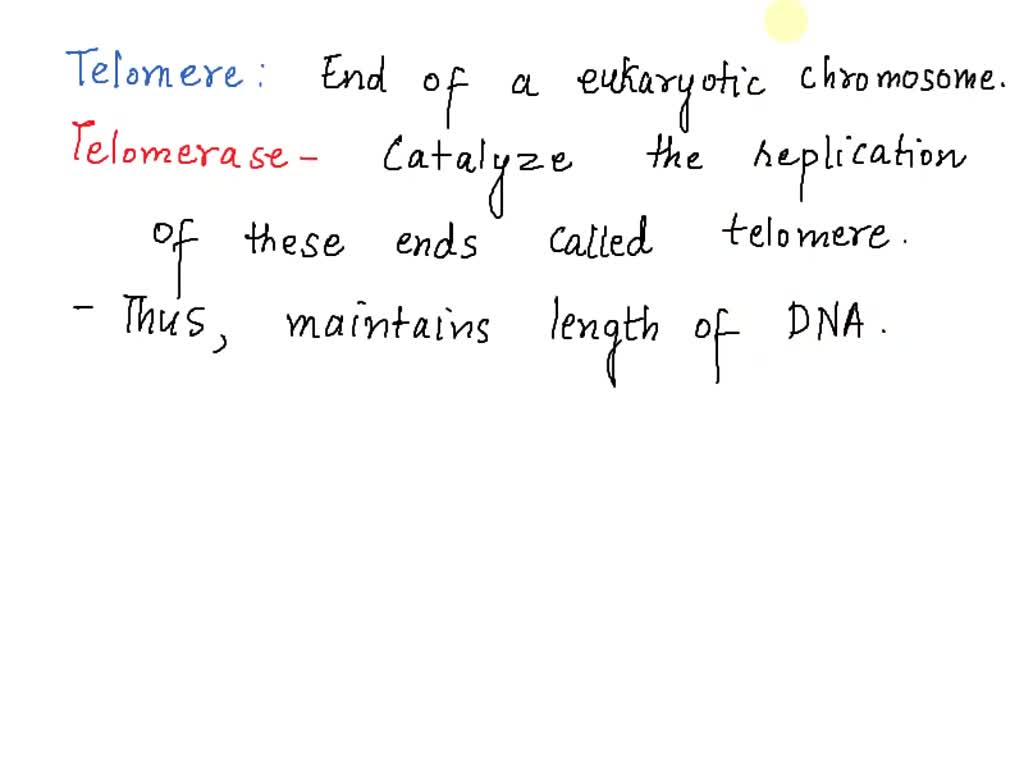 Telomere: End of a eukaryotic chromosome.
Telomerase - Catalyze the replication
of these ends called telomere.
- Thus, maintains length of DNA.